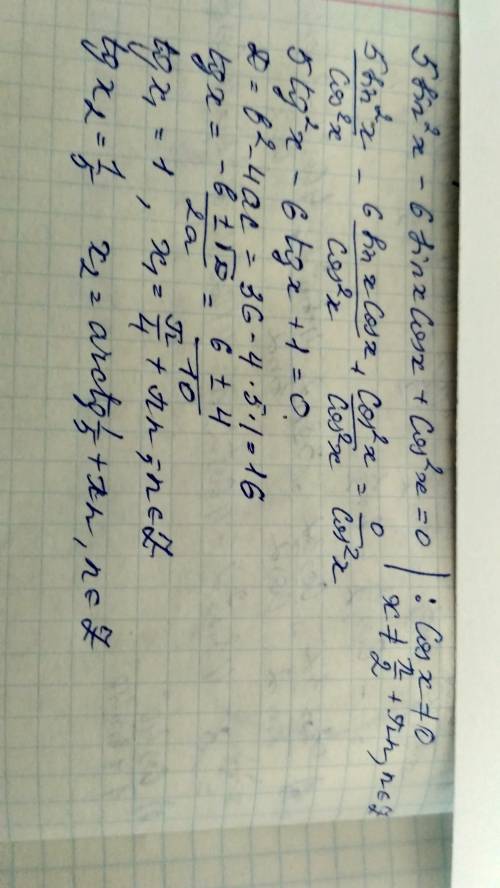 5 sin²x - 6 sinx Cosx + Cos²x = 0 | : Cosx ≠ 0
x ≠ π/2 + πn, n∈Z
5 sin²x / Cos²x - 6 sinx Cosx / Cos²x + Cos²x / Cos²x = 0 / Cos²x
5 tg²x - 6 tgx + 1 = 0
D = b² - 4ac = 36 - 4·5·1 = 16
tgx = -b ± √D / 2a = 6 ± 4 / 10
tgx₁ = 1, x₁ = π/4 + πn, n∈Z
tgx₂ = 1/5 x₂ = arctg 1/5 + πn, n∈Z